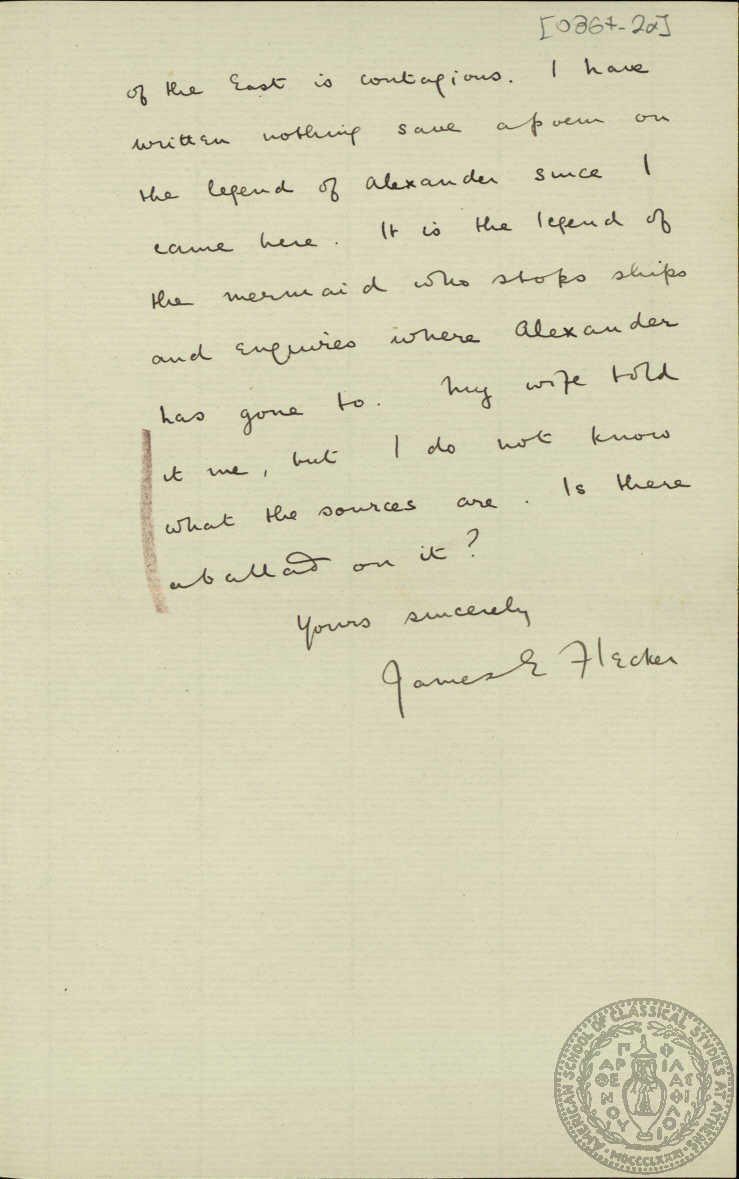 [0367-2α]
of the East is contagious. I have
written nothing save a poem on
the legend of Alexander since I
came here. It is the legend of
the mermaid who stops ships
and enquires where Alexander
has gone to. My wife told
it me, but I do not know
what the sources are. Is there
a ballad on it?
Yours sincerely
James E Flecker
AMERICAN SCHOOL OF CLASSICAL STUDIES AT ATHENS
ΠΑΡΘΕΝΟΥ ΦΙΛΑΣ ΦΙΛΟΙ
MDCCCLXXXI